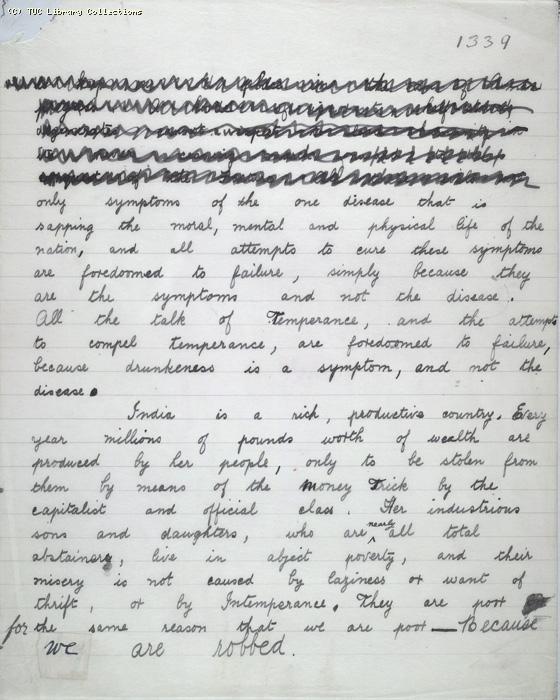 (C) TUC Library Collections
1339
only symptoms of the one disease that is
sapping the moral, mental and physical life of the
nation, and all attempts to cure these symptoms
are foredoomed to failure, simply because they
are the symptoms and not the disease.
All the talk of Temperance, and the attempts
to compel temperance, are foredoomed to failure,
because drunkeness is a symptom, and not the
disease.
India is a rich, productive country. Every
year millions of pounds worth of wealth are
produced by her people, only to be stolen from
them by means of the Money Trick by the
capitalist and official class. Her industrious
sons and daughters, who are nearly all total
abstainers, live in abject poverty, and their
misery is not caused by laziness or want of
thrift, or by Intemperance. They are poor
for the same reason that we are poor — Because
we are robbed.